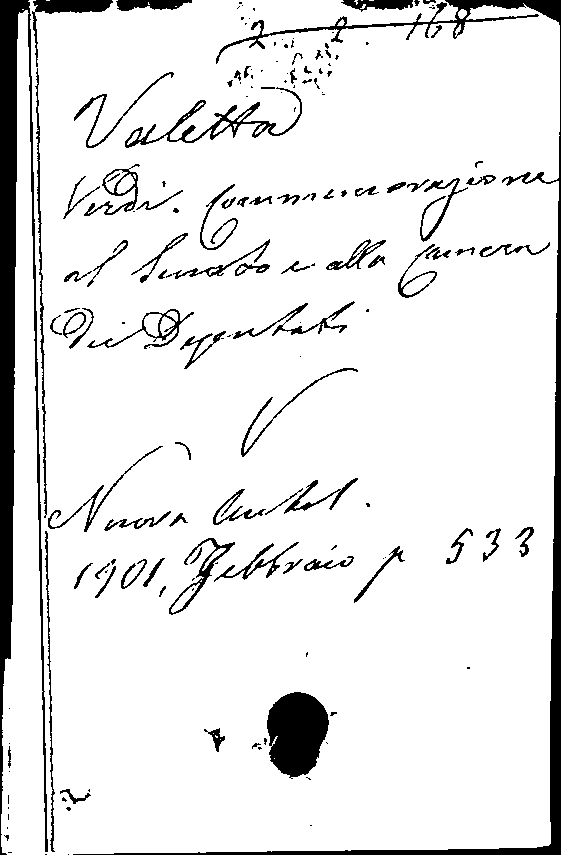 2. 2. 168
Valetta
Verdi. Commemorazione
al Senato e alla Camera
dei Deputati
V
Nuova Antol.
1901, Febbraio p 533